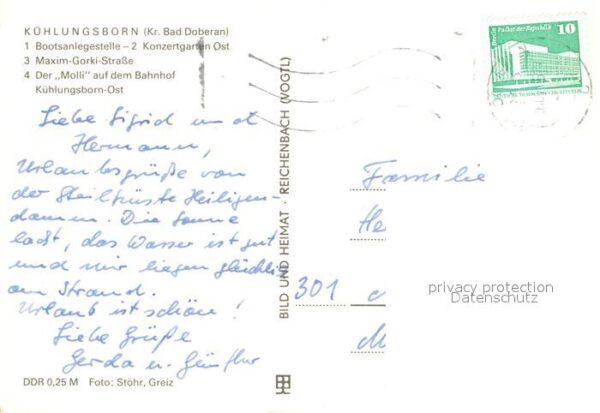 KÜHLUNGSBORN (Kr. Bad Doberan)
1 Bootsanlegestelle – 2 Konzertgarten Ost
3 Maxim-Gorki-Straße
4 Der „Molli" auf dem Bahnhof
Kühlungsborn-Ost
Liebe Sigrid und
Hermann,
Urlaubsgrüße von
der Steilküste Heiligen-
damm. Die Sonne
lacht, das Wasser ist gut
und wir liegen glücklich
am Strand.
Urlaub ist schön!
Liebe Grüße
Gerda u. Günther
DDR 0,25 M Foto: Stöhr, Greiz
BILD UND HEIMAT · REICHENBACH (VOGTL)
Berlin Palast der Republik
10
Familie
He
301
privacy protection
Datenschutz